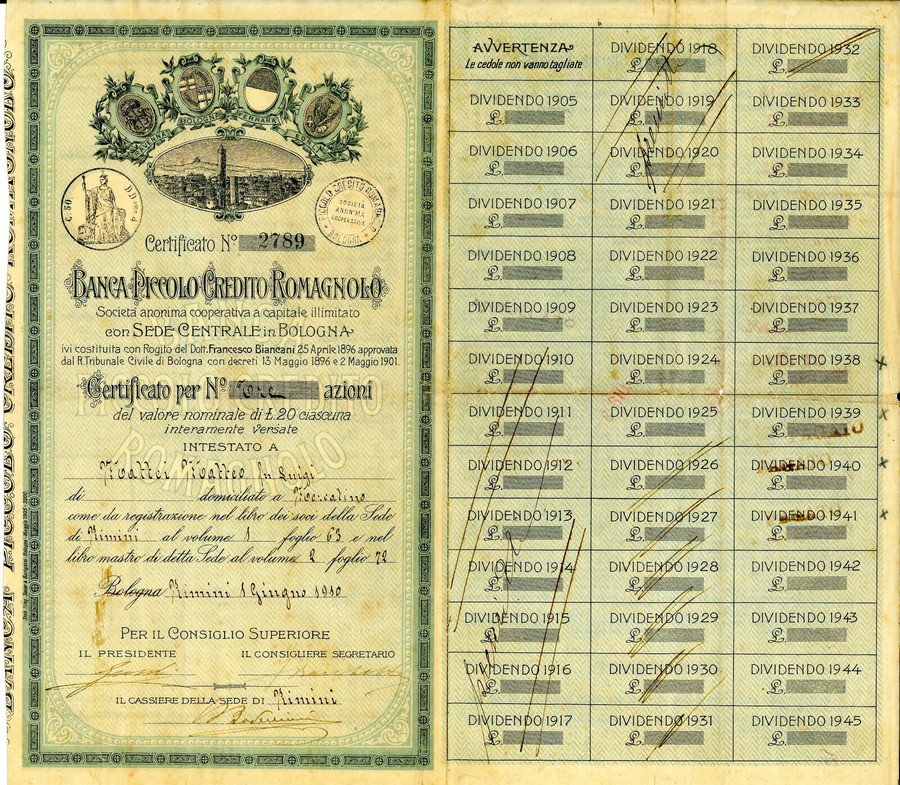 BOLOGNA
FERRARA
PICCOLO CREDITO ROMAGNOLO
SOCIETÀ
ANONIMA
COOPERATIVA
BOLOGNA
Certificato No 2789
BANCA PICCOLO CREDITO ROMAGNOLO
Società anonima cooperativa a capitale illimitato
con SEDE CENTRALE in BOLOGNA
ivi costituita con Rogito del Dott. Francesco Bianeani 25 Aprile 1896 approvata
dal R. Tribunale Civile di Bologna con decreti 13 Maggio 1896 e 2 Maggio 1901.
Certificato per No Tre azioni
del valore nominale di £.20 ciascuna
interamente versate
INTESTATO A
Mattei Matteo fu Luigi
di domiciliato a Mercatino
come da registrazione nel libro dei soci della Sede
di Rimini al volume 1 foglio 63 e nel
libro mastro di detta Sede al volume 2 foglio 72
Bologna Rimini 1 Giugno 1910
PER IL CONSIGLIO SUPERIORE
IL PRESIDENTE IL CONSIGLIERE SEGRETARIO
IL CASSIERE DELLA SEDE DI Rimini
BANCA PICCOLO CREDITO ROMAGNOLO
AVVERTENZA
Le cedole non vanno tagliate
DIVIDENDO 1905
£.
DIVIDENDO 1906
£.
DIVIDENDO 1907
£.
DIVIDENDO 1908
£.
DIVIDENDO 1909
£.
DIVIDENDO 1910
£.
DIVIDENDO 1911
£.
DIVIDENDO 1912
£.
DIVIDENDO 1913
£.
DIVIDENDO 1914
£.
DIVIDENDO 1915
£.
DIVIDENDO 1916
£.
DIVIDENDO 1917
£.
DIVIDENDO 1918
£.
DIVIDENDO 1919
£.
DIVIDENDO 1920
£.
DIVIDENDO 1921
£.
DIVIDENDO 1922
£.
DIVIDENDO 1923
£.
DIVIDENDO 1924
£.
DIVIDENDO 1925
£.
DIVIDENDO 1926
£.
DIVIDENDO 1927
£.
DIVIDENDO 1928
£.
DIVIDENDO 1929
£.
DIVIDENDO 1930
£.
DIVIDENDO 1931
£.
DIVIDENDO 1932
£.
DIVIDENDO 1933
£.
DIVIDENDO 1934
£.
DIVIDENDO 1935
£.
DIVIDENDO 1936
£.
DIVIDENDO 1937
£.
DIVIDENDO 1938
£.
DIVIDENDO 1939
£.
DIVIDENDO 1940
£.
DIVIDENDO 1941
£.
DIVIDENDO 1942
£.
DIVIDENDO 1943
£.
DIVIDENDO 1944
£.
DIVIDENDO 1945
£.